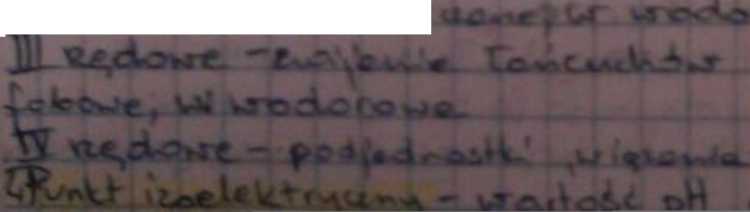 III rędowe - zwijenie łańcuchów
fobowe, w. wodorowe
IV rzędowe - podjednostki, wiązania
Punkt izoelektryczny - wartość pH